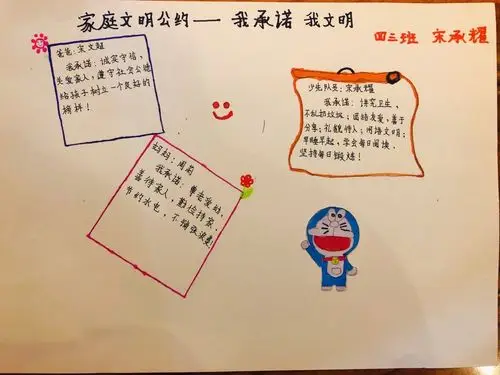 家庭文明公约——我承诺 我文明
四三班 宋承耀
爸爸:宋文超
我承诺:诚实守信,
关爱家人,遵守社会公德
给孩子树立一个良好的
榜样!
妈妈:周莉
我承诺:尊老爱幼,
善待家人,勤俭持家,
节约水电,不铺张浪费
少先队员:宋承耀
我承诺:讲究卫生,
不乱扔垃圾;团结友爱,善于
分享;礼貌待人;网络文明;
早睡早起,学会每日阅读,
坚持每日锻炼!